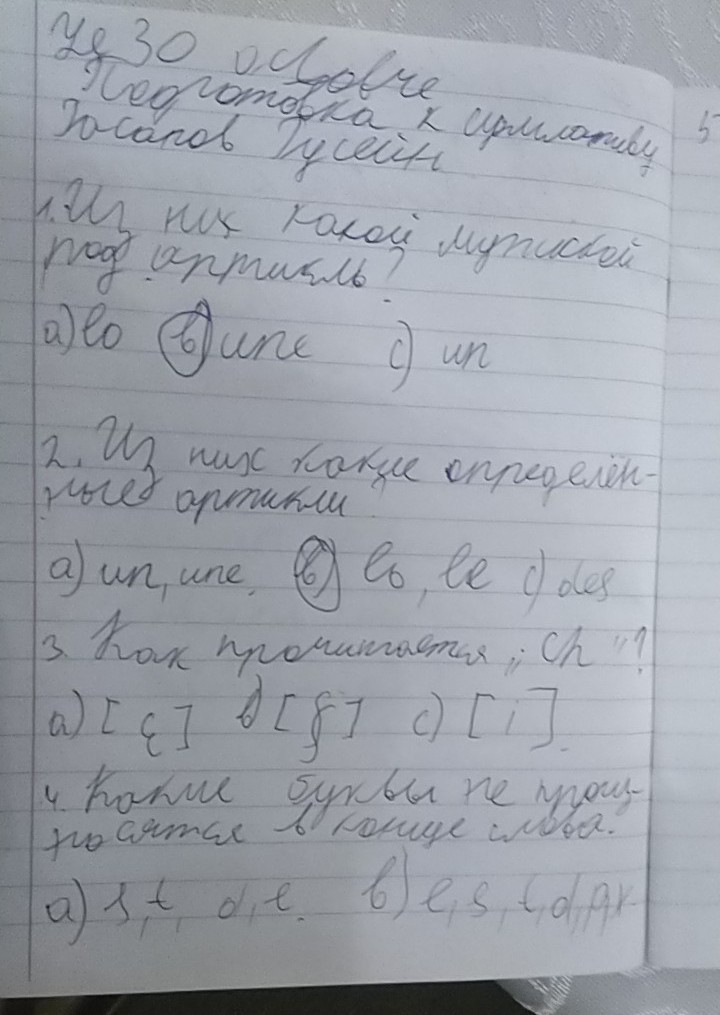 Подготовка к суммативу
Гусейн
1. Из них какой мужской
род артикль?
a) la b) une c) un
2. Из них какие определён-
ные артикли
a) un, une. b) la, le c) des
3. Как прочитается „ch"?
a) [ ] b) [ ] c) [i]
4. Какие буквы не произ-
носятся в конце слова.
a) s, t, d, e. b) e, s, t, d, p, x